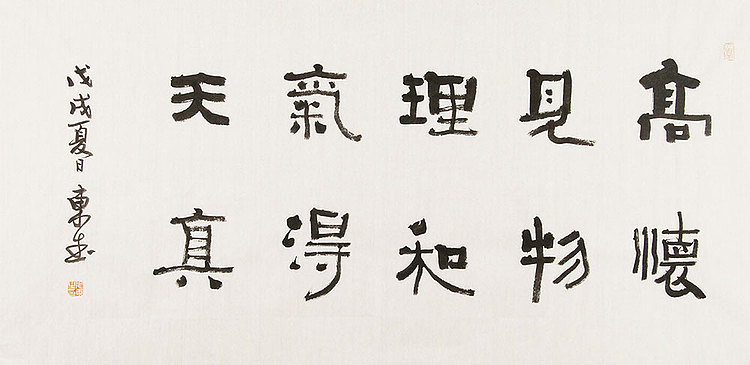 髙懷
見物
理和
氣得
天真
戊戌夏日東